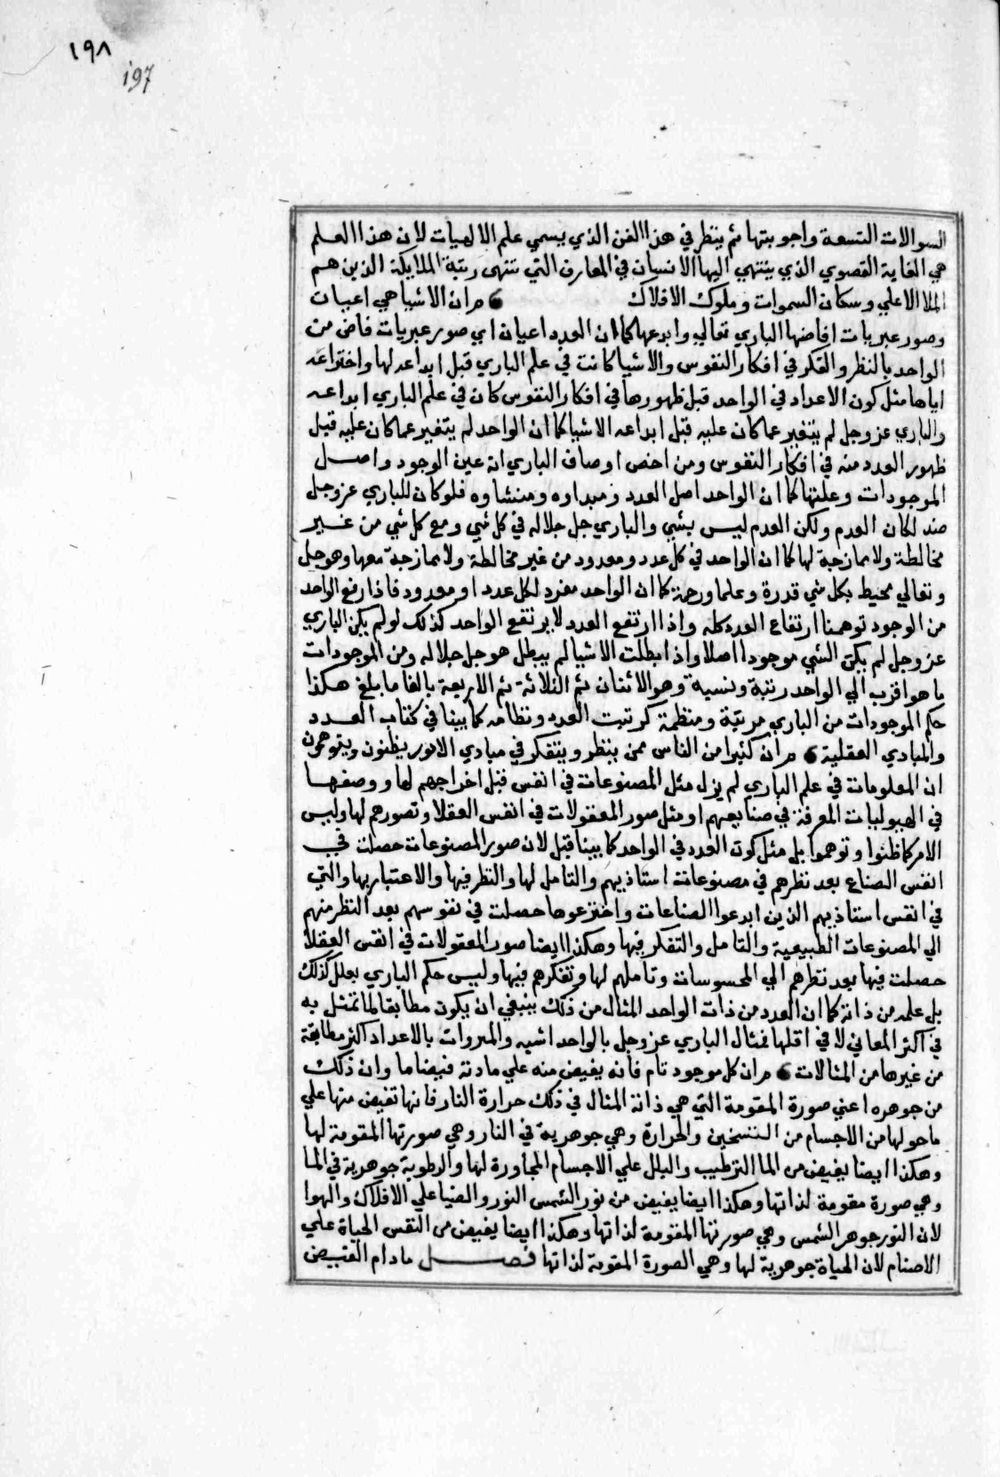 ١٩٨
197
السوالات التسعة واجوبتها ثم ينظر في هذا الفن الذي يسمي علم الالهيات لان هذا العلم
هي الغاية القصوي الذي ينتهي اليها الانسان في المعارف التي تنتهى رتبة الملايكة الذين هم
الملا الاعلي وسكان السموات وملوك الافلاك م ران الاشيا هي اعيان
وصور عبريات افاضها الباري تعالي وابدعها كما ان العدد اعيان اي صور عبريات فاض من
الواحد بالنظر والفكر في افكار النفوس والاشيا كانت في علم الباري قبل ابداعه لها واختراعه
اياها مثل كون الاعداد في الواحد قبل ظهورها في افكار النفوس كان في علم الباري ابداعه
والباري عز وجل لم يتغير عما كان عليه قبل ابداعه الاشيا كما ان الواحد لم يتغير عما كان عليه قبل
ظهور العدد منه في افكار النفوس ومن اخص اوصاف الباري انه عين الوجود واصل
الموجودات وعلتها كما ان الواحد اصل العدد ومبداوه ومنشاوه فلو كان للباري عز وجل
ضد لكان العدم ولكن العدم ليس بشي والباري جل جلاله في كل شي ومع كل شي من غير
مخالطة ولا ممازجة لها كما ان الواحد في كل عدد ومعدود من غير مخالطة ولا ممازجة معها وهو جل
وتعالي محيط بكل شي قدرة وعلما ورحمة كما ان الواحد مفرد لكل عدد او معدود فاذا رفع الواحد
من الوجود توهمنا ارتفاع العدد كله واذا ارتفع العدد لا يرتفع الواحد كذلك لو لم يكن الباري
عز وجل لم يكن الشي موجودا اصلا واذا بطلت الاشيا لم يبطل هو جل جلاله ومن الموجودات
ما هو اقرب الي الواحد رتبة ونسبة وهو الاثنان ثم الثلاثة ثم الاربعة بالغا ما بلغ هكذا
حكم الموجودات من الباري مرتبة ومنظمة كرتيب العدد ونظامه كما بينا في كتاب العدد
والمبادي العقلية م ران كثيرا من الناس ممن ينظر ويتفكر في مبادي الامور يظنون ويتوهمون
ان المعلومات في علم الباري لم يزل مثل المصنوعات في انفس قبل اخراجهم لها ووصفها
في الهيوليات المعرفة في صنايعهم او مثل صور المعقولات في انفس العقلا وتصورهم لها وليس
الامر كما ظنوا وتوهموا بل مثل كون العدد في الواحد كما بينا قبل لان صور المصنوعات حصلت في
انفس الصناع بعد نظرهم في مصنوعات استاذيهم والتامل لها والنظر فيها والاعتبار بها والتي
في انفس استاذيهم الذين ابدعوا الصناعات واخترعوها حصلت في نفوسهم بعد النظر منهم
الي المصنوعات الطبيعية والتامل والتفكر فيها وهكذا ايضا صور المعقولات في انفس العقلا
حصلت فيها بعد نظرهم الي المحسوسات وتاملهم لها وتفكرهم فيها وليس حكم الباري بعلل كذلك
بل علمه من ذاته كما ان العدد من ذات الواحد المثال من ذلك ينبغي ان يكون مطابقا لما تمثل به
في اكثر المعاني لا في اقلها فمثال الباري عز وجل بالواحد اشبه والمبروات بالاعداد اكثر مطابقة
من غيرها من المثالات م ران كل موجود تام فانه يفيض منه علي مادنه فيضا ما وان ذلك
من جوهره اعني صورة المقومة التي هي ذاته المثال في ذلك حرارة النار فانها تفيض منها علي
ما حولها من الاجسام من التسخين والحرارة وهي جوهرية في النار وهي صورتها المقومة لها
وهكذا ايضا يفيض من الما الترطيب والبلل علي الاجسام المجاورة لها والرطوبة جوهرية في الما
وهي صورة مقومة لذاتها وهكذا ايضا يفيض من نور الشمس النور والضيا علي الافلاك والهوا
لان النور جوهر الشمس وهي صورتها المقومة لذاتها وهكذا ايضا يفيض من النفس الحياة علي
الاصنام لان الحياة جوهرية لها وهي الصورة المقومة لذاتها فصل ما دام الفيض